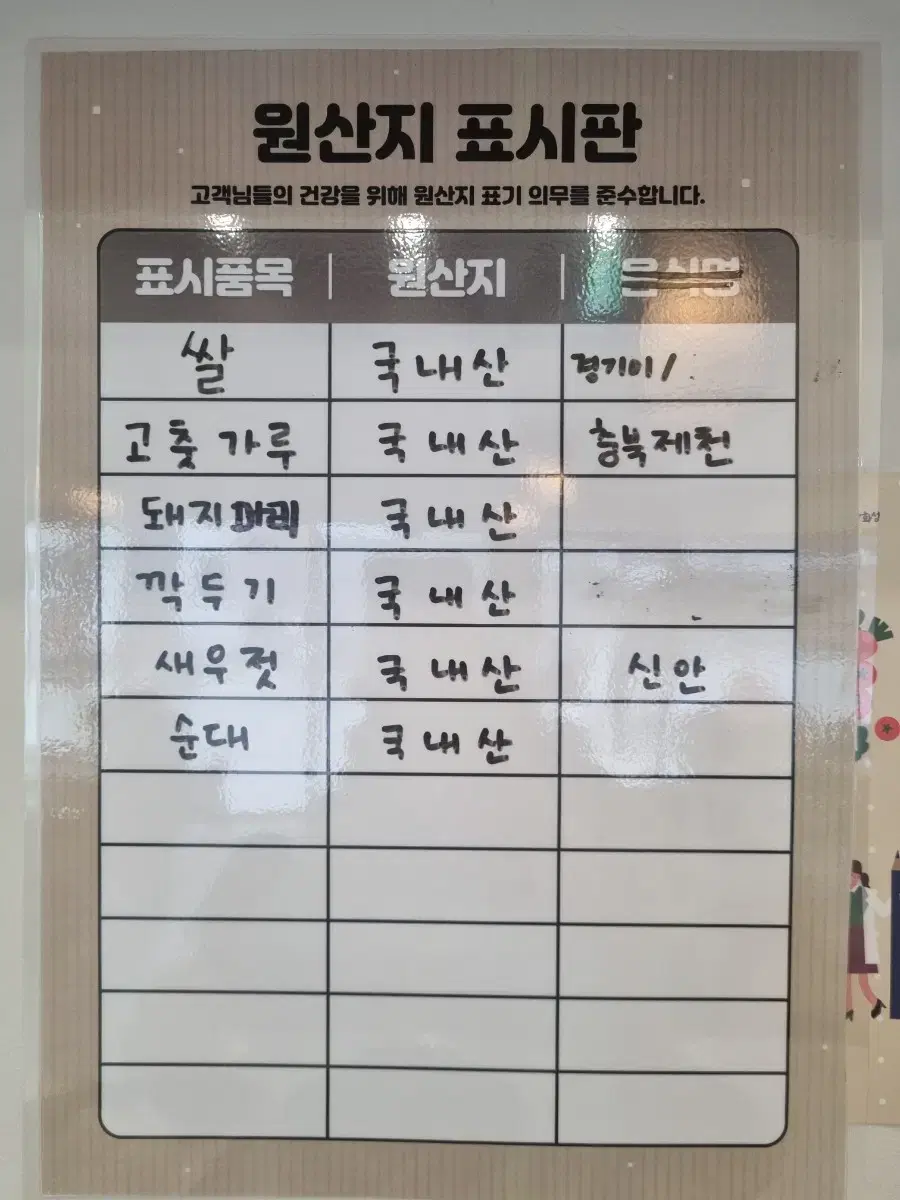 원산지 표시판
고객님들의 건강을 위해 원산지 표기 의무를 준수합니다.
표시품목 원산지 음식명
쌀 국내산 경기이
고춧가루 국내산 충북제천
돼지머리 국내산
깍두기 국내산
새우젓 국내산 신안
순대 국내산